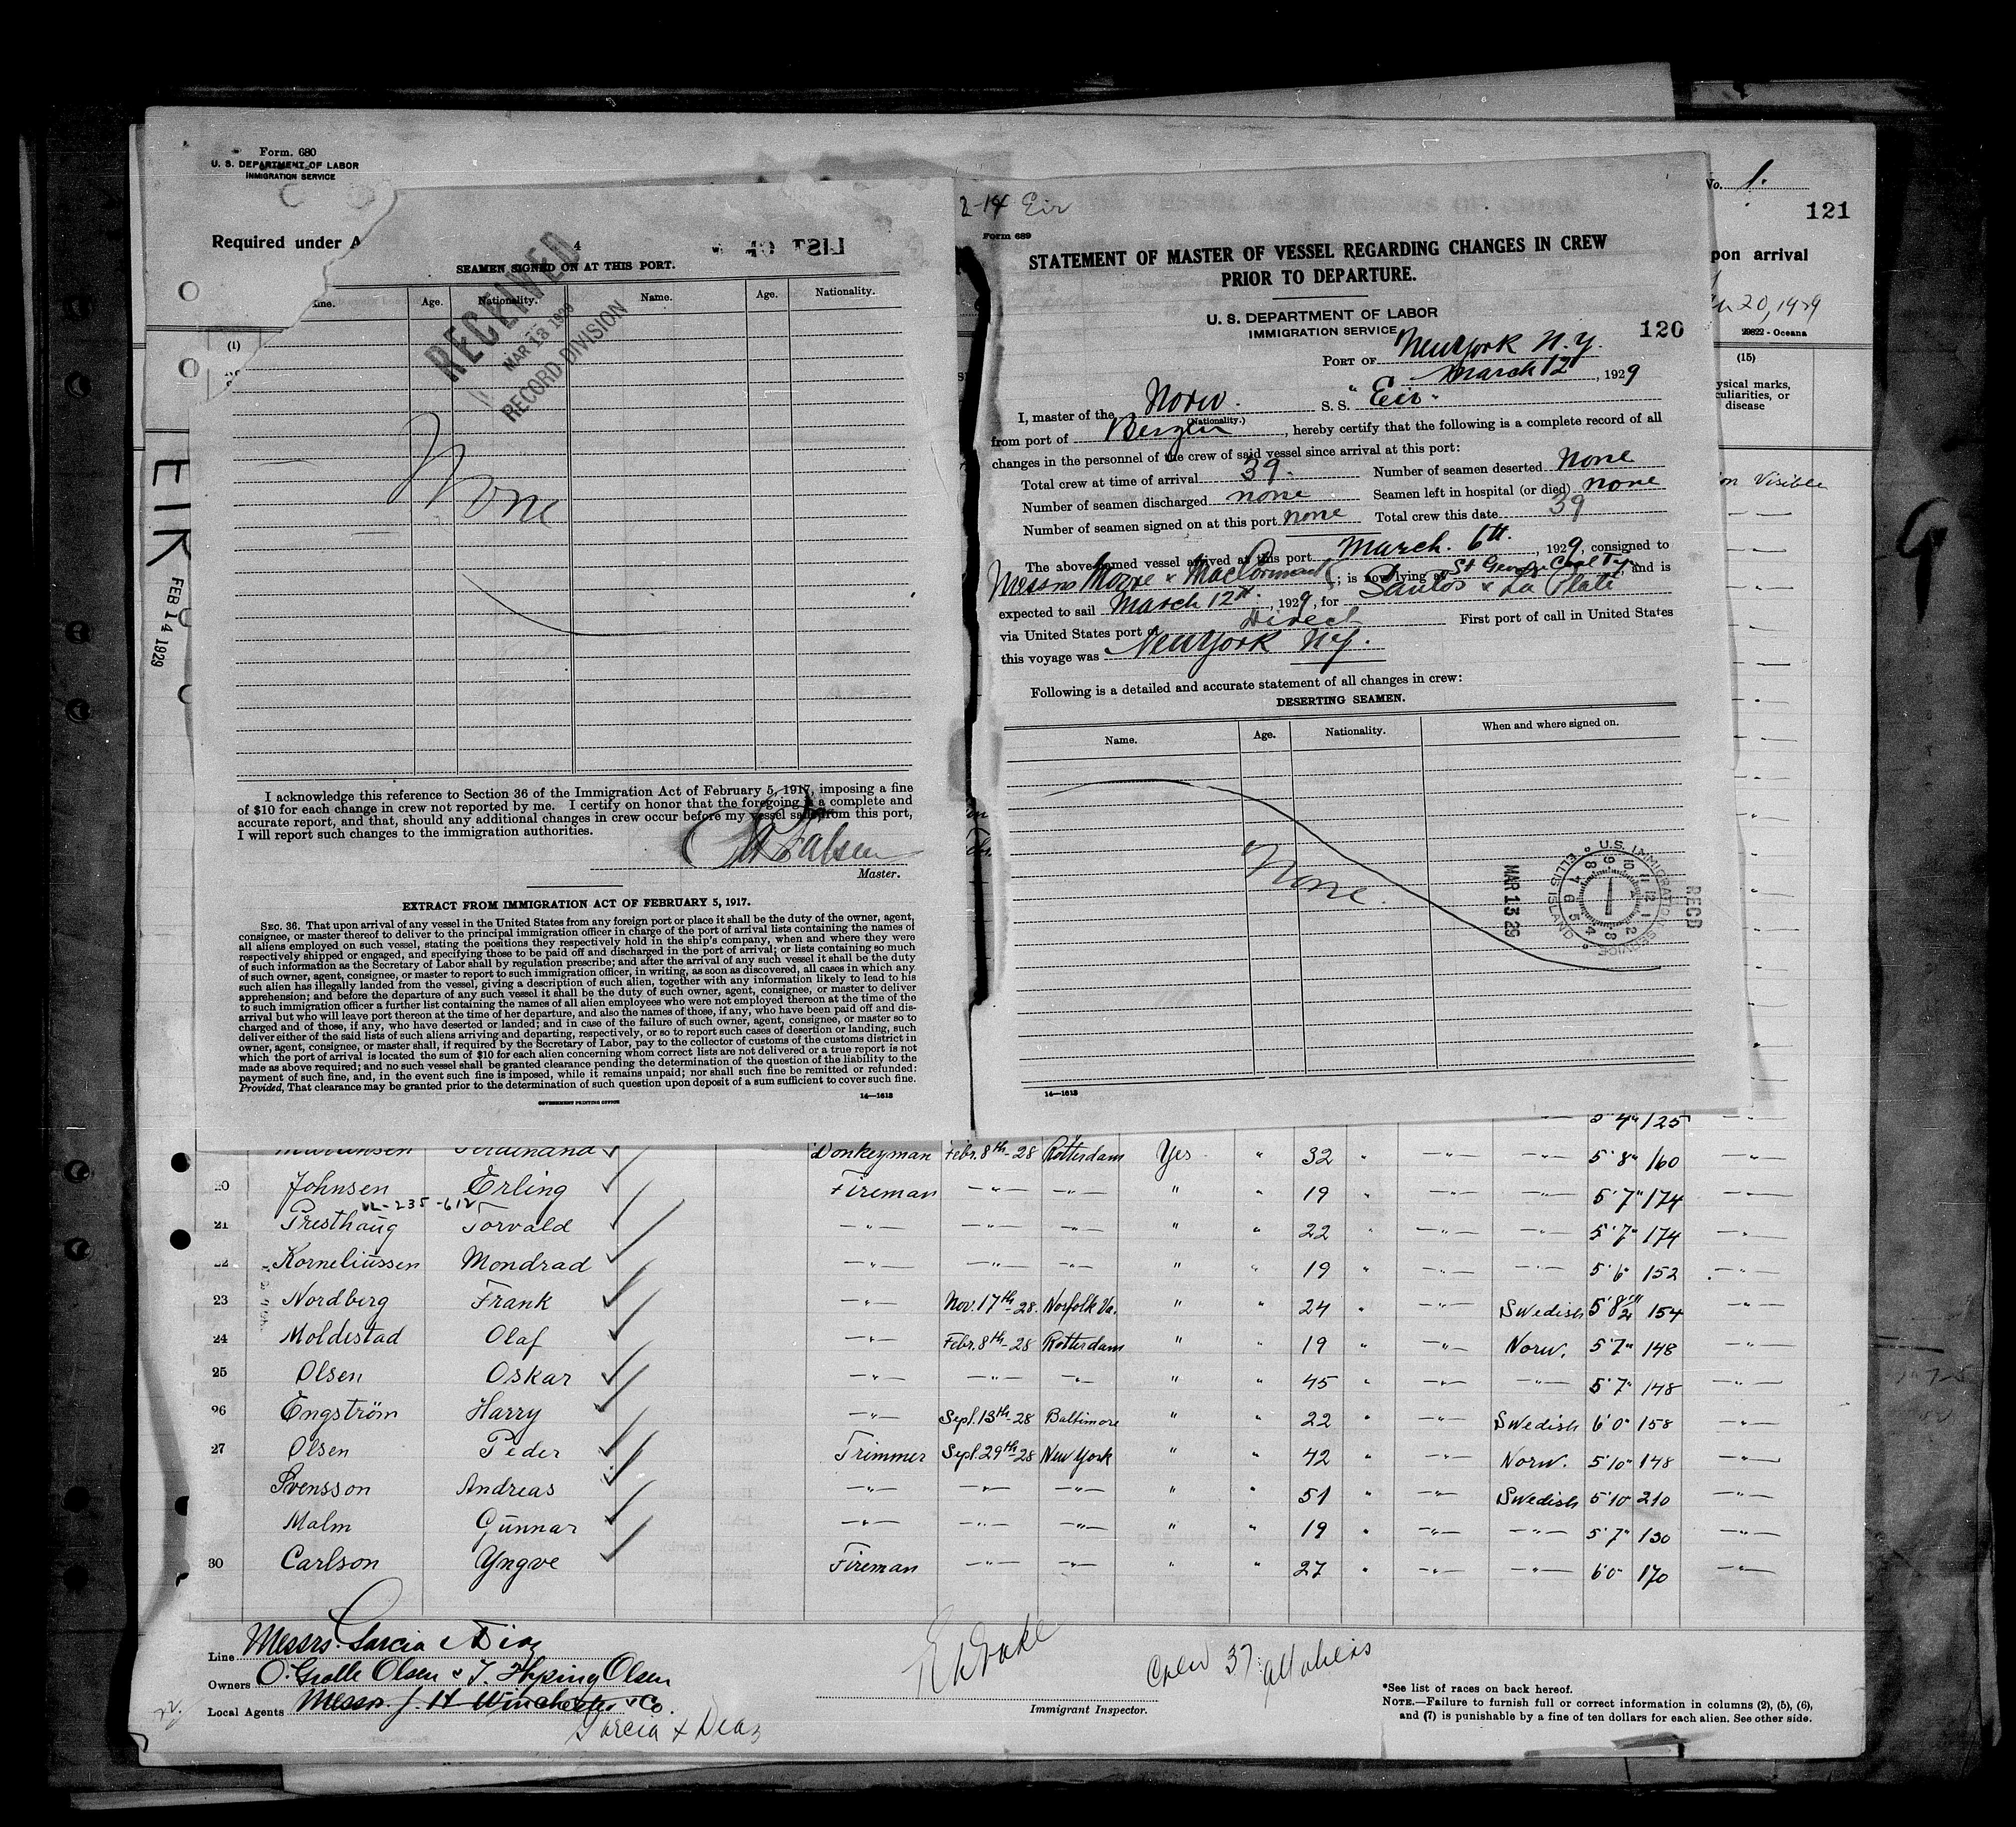 Form. 680
U. S. DEPARTMENT OF LABOR
IMMIGRATION SERVICE
Required under A
No. 1.
121
pon arrival
20, 1929
29822 - Oceana
(1)
(15)
ysical marks,
culiarities, or
disease
on Visible
EIR
FEB 14 1929
4
LIST OF
SEAMEN SIGNED ON AT THIS PORT.
Name. Age. Nationality. Name. Age. Nationality.
RECEIVED
MAR 18 1929
RECORD DIVISION
None
I acknowledge this reference to Section 36 of the Immigration Act of February 5, 1917, imposing a fine
of $10 for each change in crew not reported by me. I certify on honor that the foregoing is a complete and
accurate report, and that, should any additional changes in crew occur before my vessel sails from this port,
I will report such changes to the immigration authorities.
Master.
EXTRACT FROM IMMIGRATION ACT OF FEBRUARY 5, 1917.
SEC. 36. That upon arrival of any vessel in the United States from any foreign port or place it shall be the duty of the owner, agent,
consignee, or master thereof to deliver to the principal immigration officer in charge of the port of arrival lists containing the names of
all aliens employed on such vessel, stating the positions they respectively hold in the ship's company, when and where they were
respectively shipped or engaged, and specifying those to be paid off and discharged in the port of arrival; or lists containing so much
of such information as the Secretary of Labor shall by regulation prescribe; and after the arrival of any such vessel it shall be the duty
of such owner, agent, consignee, or master to report to such immigration officer, in writing, as soon as discovered, all cases in which any
such alien has illegally landed from the vessel, giving a description of such alien, together with any information likely to lead to his
apprehension; and before the departure of any such vessel it shall be the duty of such owner, agent, consignee, or master to deliver
to such immigration officer a further list containing the names of all alien employees who were not employed thereon at the time of the
arrival but who will leave port thereon at the time of her departure, and also the names of those, if any, who have been paid off and dis-
charged and of those, if any, who have deserted or landed; and in case of the failure of such owner, agent, consignee, or master so to
deliver either of the said lists of such aliens arriving and departing, respectively, or so to report such cases of desertion or landing, such
owner, agent, consignee, or master shall, if required by the Secretary of Labor, pay to the collector of customs of the customs district in
which the port of arrival is located the sum of $10 for each alien concerning whom correct lists are not delivered or a true report is not
made as above required; and no such vessel shall be granted clearance pending the determination of the question of the liability to the
payment of such fine, and, in the event such fine is imposed, while it remains unpaid; nor shall such fine be remitted or refunded:
Provided, That clearance may be granted prior to the determination of such question upon deposit of a sum sufficient to cover such fine.
GOVERNMENT PRINTING OFFICE
14—1613
2-14 Eir
Form 689
STATEMENT OF MASTER OF VESSEL REGARDING CHANGES IN CREW
PRIOR TO DEPARTURE.
U. S. DEPARTMENT OF LABOR
IMMIGRATION SERVICE
120
PORT OF New York N. Y.
March 12, 1929
I, master of the Norw. S. S. "Eir"
(Nationality.)
from port of Bergen, hereby certify that the following is a complete record of all
changes in the personnel of the crew of said vessel since arrival at this port:
Total crew at time of arrival 39. Number of seamen deserted None
Number of seamen discharged none Seamen left in hospital (or died) none
Number of seamen signed on at this port none Total crew this date 39
The above-named vessel arrived at this port March. 6th., 1929, consigned to
Messrs Moore & MacCormack; is now lying at St George Coal, and is
expected to sail March 12th., 1929, for Santos & La Plate
via United States port of Direct First port of call in United States
this voyage was New York N.Y.
Following is a detailed and accurate statement of all changes in crew:
DESERTING SEAMEN.
Name. Age. Nationality. When and where signed on.
None.
U.S. IMMIGRATION SERVICE ELLIS ISLAND
MAR 13 29
REC'D
14—1613
5'4" 125
Martinsen Ferdinand Donkeyman Febr. 8th-28 Rotterdam Yes " 32 " —"— —"— 5'8" 160 —"—
20 Johnsen Erling Fireman —"— —"— " " 19 " —"— —"— 5'7" 174 —"—
VL-235-612
21 Presthaug Torvald —"— —"— —"— " " 22 " —"— —"— 5'7" 174 —"—
22 Korneliussen Mondrad —"— —"— —"— " " 19 " —"— —"— 5'6" 152 —"—
23 Nordberg Frank —"— Nov. 17th-28. Norfolk Va. " " 24 " —"— Swedish 5'8½" 154 —"—
24 Moldestad Olaf —"— Febr. 8th-28 Rotterdam " " 19 " —"— Norw. 5'7" 148 —"—
25 Olsen Oskar —"— —"— —"— " " 45 " —"— —"— 5'7" 148 —"—
26 Engström Harry —"— Sept. 13th-28 Baltimore " " 22 " —"— Swedish 6'0" 158 —"—
27 Olsen Peder Trimmer Sept. 29th-28 New York " " 42 " —"— Norw. 5'10" 148 —"—
Svensson Andreas —"— —"— —"— " " 51 " —"— Swedish 5'10" 210 —"—
Malm Gunnar —"— —"— —"— " " 19 " —"— —"— 5'7" 130 —"—
30 Carlson Yngve Fireman —"— —"— " " 27 " —"— —"— 6'0" 170 —"—
Line Messrs. Garcia & Diaz
Owners O. Grolle Olsen & T. Hysing Olsen
Local Agents Messrs J. H Winchester & Co.
Garcia & Diaz
Immigrant Inspector.
Crew 37 all aliens
*See list of races on back hereof.
NOTE.—Failure to furnish full or correct information in columns (2), (5), (6),
and (7) is punishable by a fine of ten dollars for each alien. See other side.